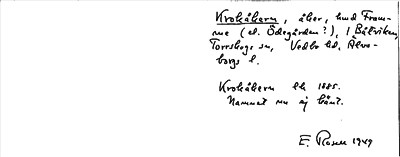 Krokåkern, åker, hmd Fram-
me (el. Ödegården?), i Båtviken,
Torrskogs sn, Vedbo hd, Älvs-
borgs l.
Krokåkern lk 1885.
Namnet nu ej känt.
E. Rosell 1949